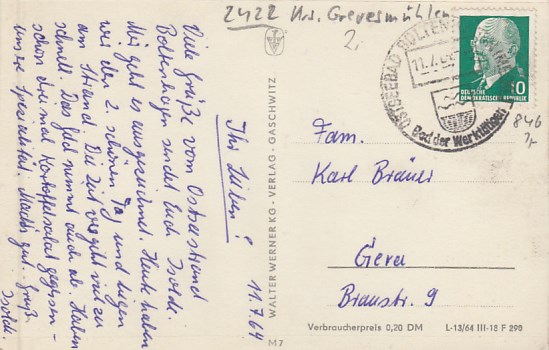 2422 Krs. Grevesmühlen
2,-
Ihr Lieben!
Viele Grüße vom Ostseestrand
Boltenhagen sendet Euch Isolde.
Mir geht es ausgezeichnet. Heute haben
wir den 2. schönen Tag und liegen
am Strand. Die Zeit vergeht viel zu
schnell. Das Geld nimmt auch ab. Haben
schon dreimal Kartoffelsalat gegessen -
unsere Spezialität. Macht's gut. Gruß
Isolde.
11.7.64
WALTER WERNER KG · VERLAG · GASCHWITZ
M 7
OSTSEEBAD BOLTENHAGEN
11.7.64
Bad der Werktätigen
DEUTSCHE
DEMOKRATISCHE REPUBLIK
10
846
7,-
Fam.
Karl Bräuer
Gera
Braustr. 9
Verbraucherpreis 0,20 DM
L-13/64 III-18 F 290